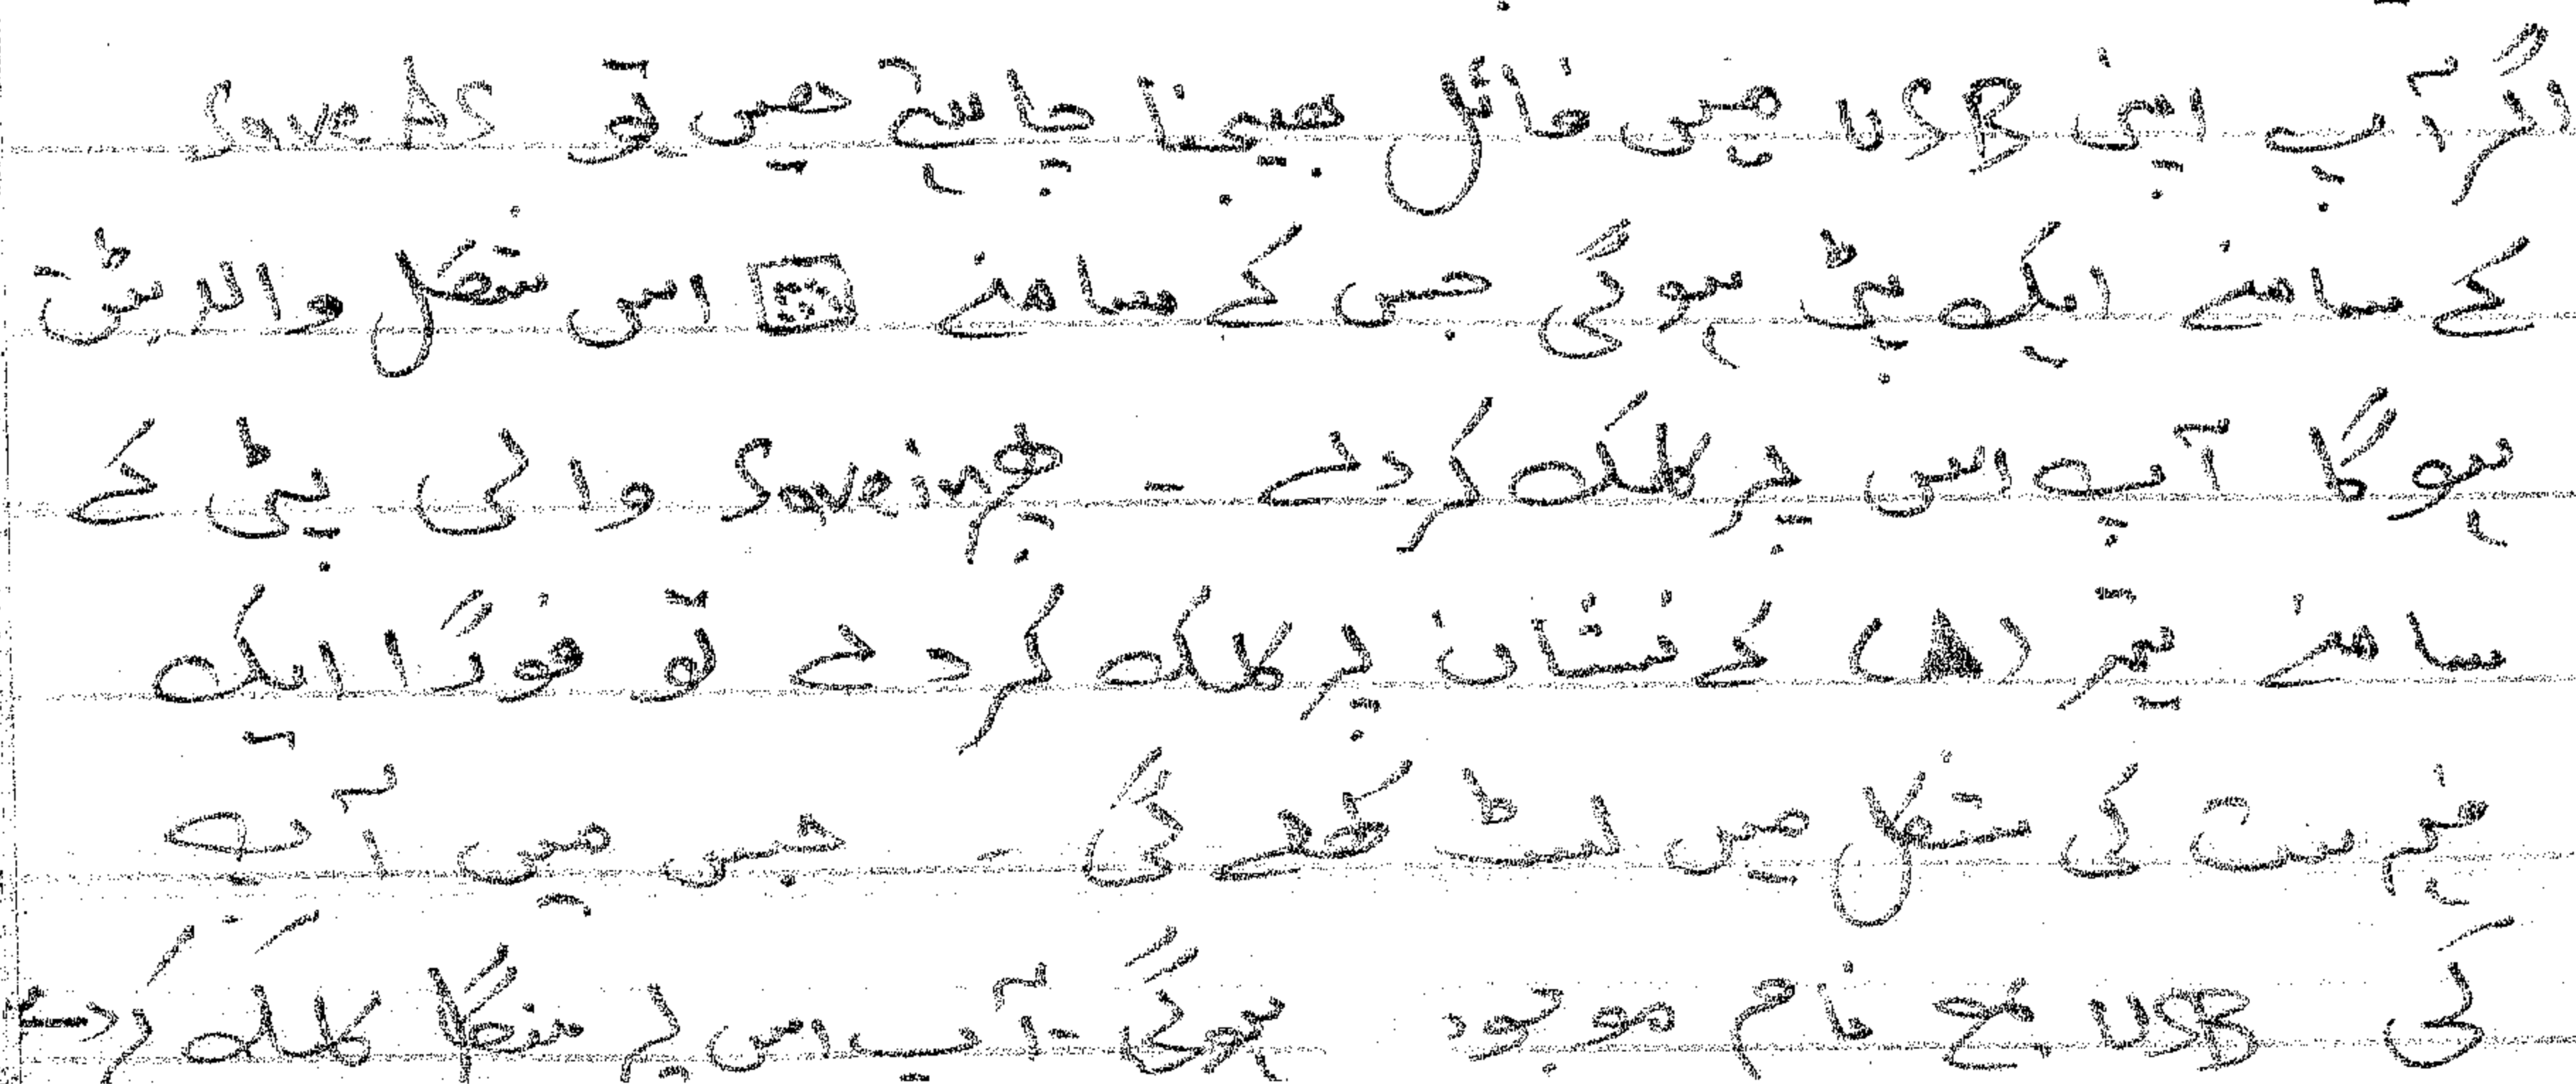 اگر آپ اپنی USB میں فائل بھیجنا چاہتے ھیں تو Save AS
کے سامنے ایک پٹی ہوگی جس کے سامنے اس شکل والا بٹن
ہوگا آپ اس پر کلک کردے - پھر Save in والی پٹی کے
سامنے تیر (▲) کے نشان پر کلک کردے تو فوراً ایک
فہرست کی شکل میں لسٹ کھلے گی - جس میں آپ
کی USB مع نام موجود ہوگی - آپ اس پر سنگل کلک کردے